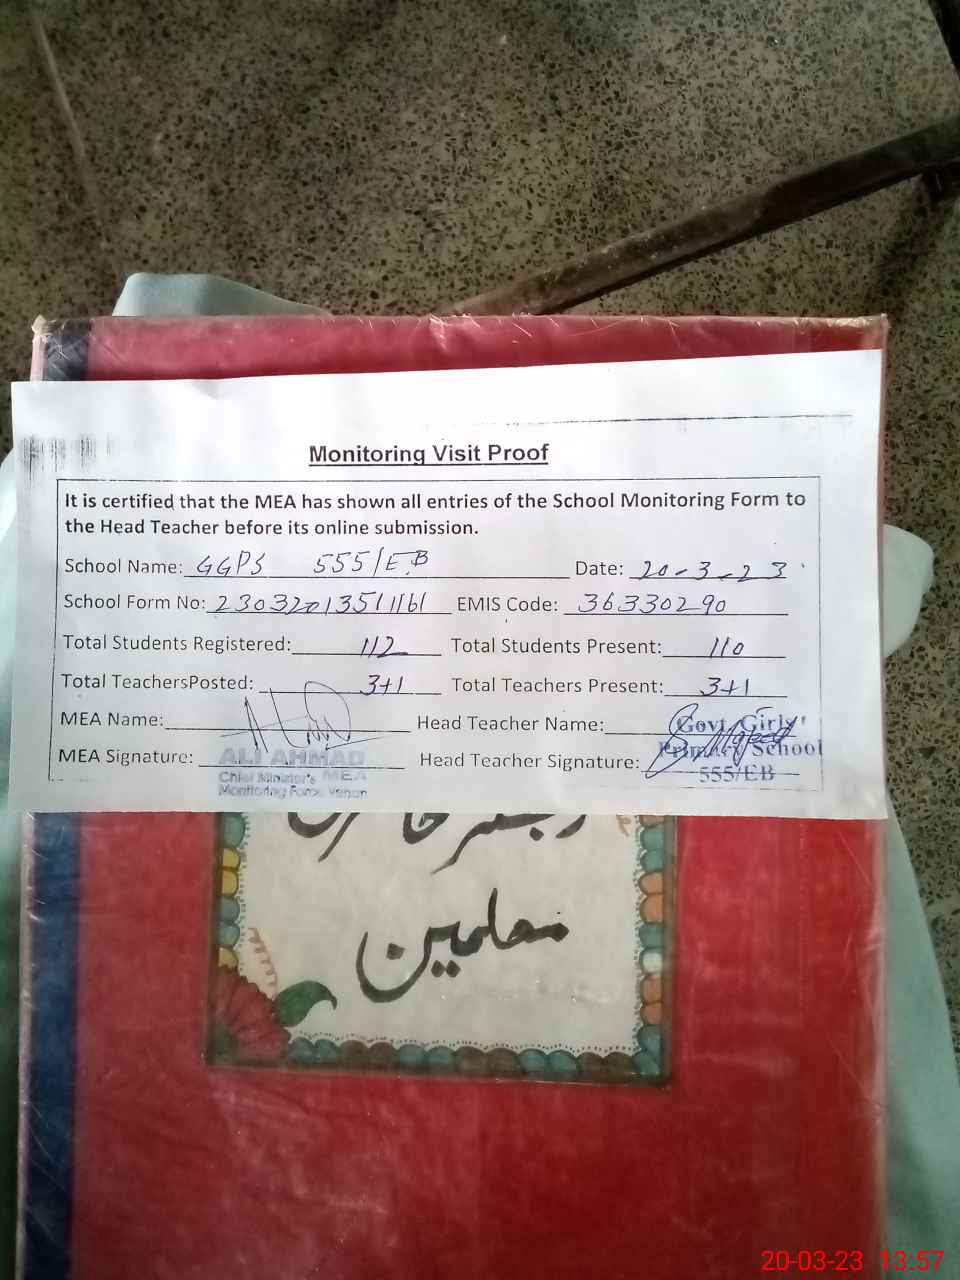 Monitoring Visit Proof
It is certified that the MEA has shown all entries of the School Monitoring Form to
the Head Teacher before its online submission.
School Name: GGPS 555/E.B Date: 20-3-23
School Form No: EMIS Code: 36330290
Total Students Registered: 112 Total Students Present: 110
Total TeachersPosted: 3+1 Total Teachers Present: 3+1
MEA Name: Head Teacher Name:
MEA Signature: Head Teacher Signature:
ALI AHMAD
Chief Minister's MEA
Monitoring Force Vehari
Govt. Girls
Primary School
555/EB
معلمین
20-03-23 13:57